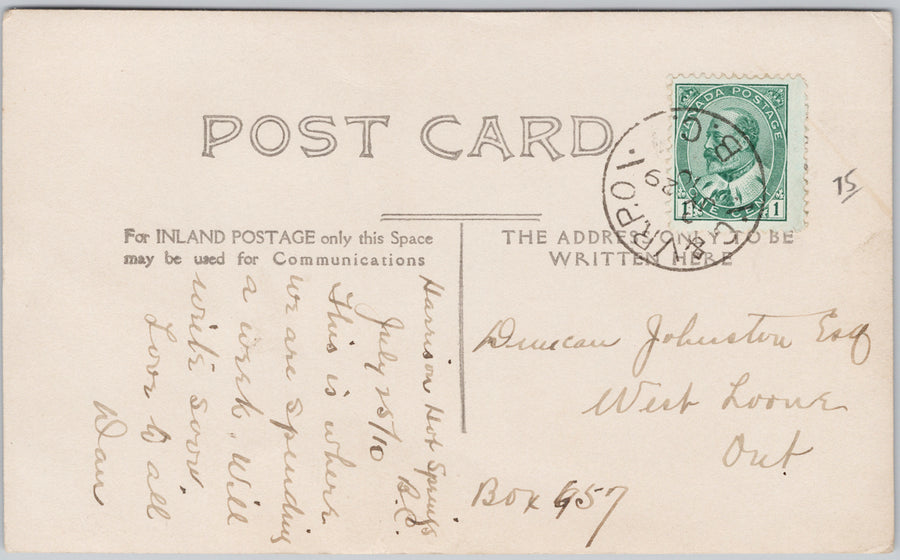 POST CARD
CANADA POSTAGE
ONE CENT
1 1
R.P.O.
B.C.
29
75
For INLAND POSTAGE only this Space
may be used for Communications
THE ADDRESS ONLY TO BE
WRITTEN HERE
Harrison Hot Springs
B.C.
July 25/10
This is where
we are spending
a week. Will
write soon.
Love to all
Dan
Duncan Johnston Esq
West Lorne
Ont
Box 657